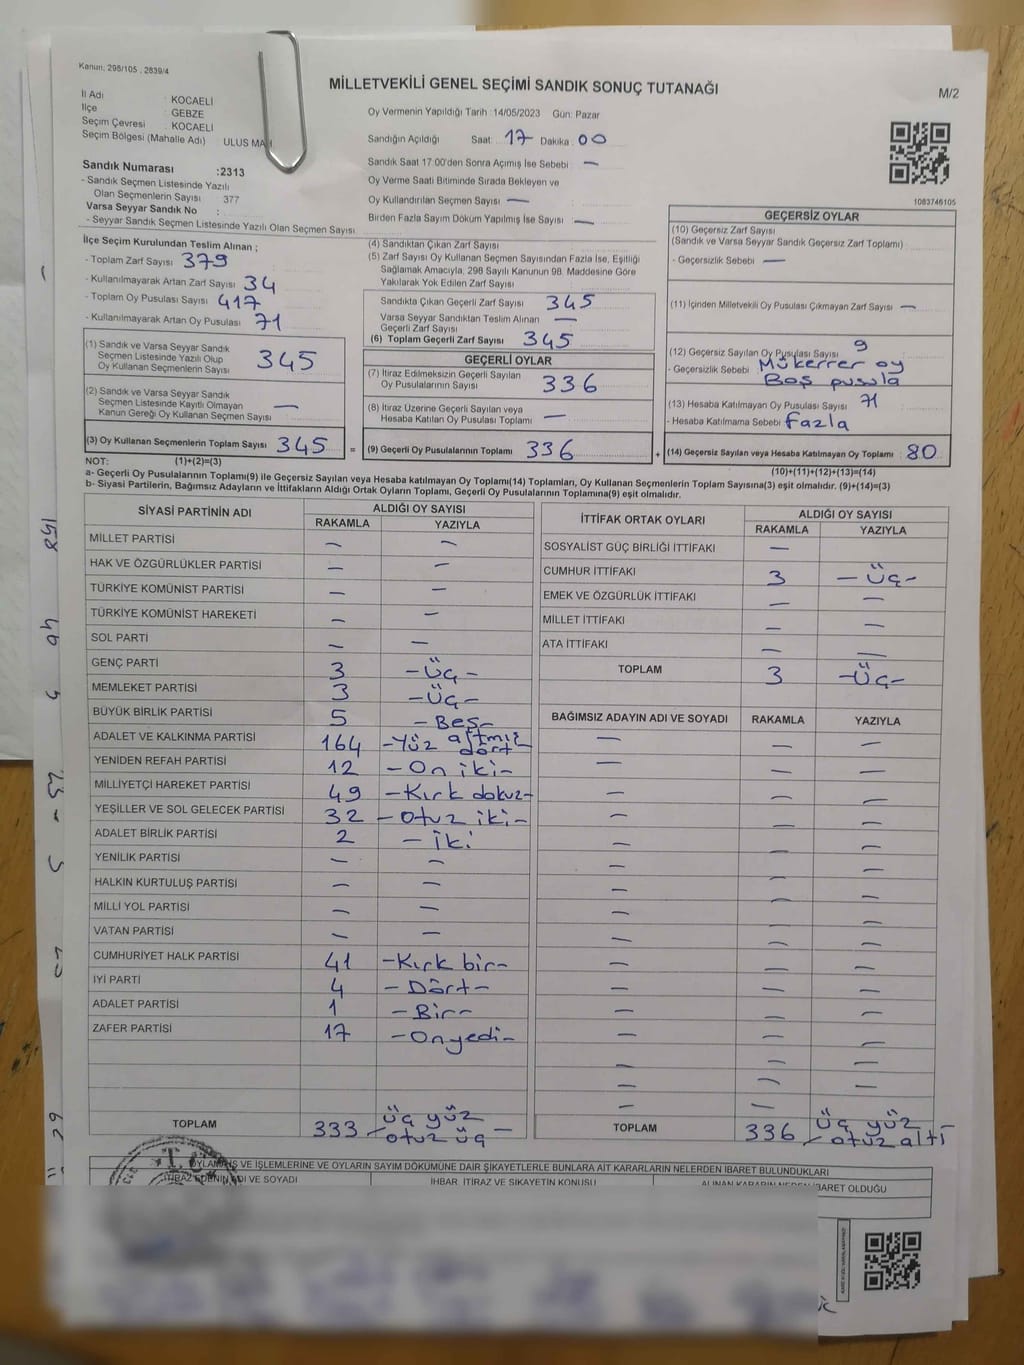 Kanun: 298/105 , 2839/4
MİLLETVEKİLİ GENEL SEÇİMİ SANDIK SONUÇ TUTANAĞI
M/2
İl Adı : KOCAELİ
İlçe : GEBZE
Seçim Çevresi : KOCAELİ
Seçim Bölgesi (Mahalle Adı) ULUS
Oy Vermenin Yapıldığı Tarih :14/05/2023 Gün: Pazar
Sandığın Açıldığı Saat: 17 Dakika: 00
Sandık Saat 17:00'den Sonra Açımış İse Sebebi : —
Oy Verme Saati Bitiminde Sırada Bekleyen ve
Oy Kullandırılan Seçmen Sayısı : —
Birden Fazla Sayım Döküm Yapılmış İse Sayısı : —
1083746105
Sandık Numarası :2313
- Sandık Seçmen Listesinde Yazılı
Olan Seçmenlerin Sayısı 377
Varsa Seyyar Sandık No :
- Seyyar Sandık Seçmen Listesinde Yazılı Olan Seçmen Sayısı
İlçe Seçim Kurulundan Teslim Alınan ;
- Toplam Zarf Sayısı : 379
- Kullanılmayarak Artan Zarf Sayısı : 34
- Toplam Oy Pusulası Sayısı : 417
- Kullanılmayarak Artan Oy Pusulası : 71
(1) Sandık ve Varsa Seyyar Sandık
Seçmen Listesinde Yazılı Olup
Oy Kullanan Seçmenlerin Sayısı : 345
(2) Sandık ve Varsa Seyyar Sandık
Seçmen Listesinde Kayıtlı Olmayan
Kanun Gereği Oy Kullanan Seçmen Sayısı : —
(3) Oy Kullanan Seçmenlerin Toplam Sayısı : 345
(4) Sandıktan Çıkan Zarf Sayısı :
(5) Zarf Sayısı Oy Kullanan Seçmen Sayısından Fazla İse, Eşitliği
Sağlamak Amacıyla, 298 Sayılı Kanunun 98. Maddesine Göre
Yakılarak Yok Edilen Zarf Sayısı :
Sandıkta Çıkan Geçerli Zarf Sayısı : 345
Varsa Seyyar Sandıktan Teslim Alınan
Geçerli Zarf Sayısı : —
(6) Toplam Geçerli Zarf Sayısı : 345
GEÇERLİ OYLAR
(7) İtiraz Edilmeksizin Geçerli Sayılan
Oy Pusulalarının Sayısı : 336
(8) İtiraz Üzerine Geçerli Sayılan veya
Hesaba Katılan Oy Pusulası Toplamı : —
= (9) Geçerli Oy Pusulalarının Toplamı : 336 +
GEÇERSİZ OYLAR
(10) Geçersiz Zarf Sayısı
(Sandık ve Varsa Seyyar Sandık Geçersiz Zarf Toplamı) :
- Geçersizlik Sebebi : —
(11) İçinden Milletvekili Oy Pusulası Çıkmayan Zarf Sayısı : —
(12) Geçersiz Sayılan Oy Pusulası Sayısı : 9
- Geçersizlik Sebebi : Mükerrer oy
Boş pusula
(13) Hesaba Katılmayan Oy Pusulası Sayısı : 71
- Hesaba Katılmama Sebebi : Fazla
(14) Geçersiz Sayılan veya Hesaba Katılmayan Oy Toplamı : 80
NOT: (1)+(2)=(3) (10)+(11)+(12)+(13)=(14)
a- Geçerli Oy Pusulalarının Toplamı(9) ile Geçersiz Sayılan veya Hesaba katılmayan Oy Toplamı(14) Toplamları, Oy Kullanan Seçmenlerin Toplam Sayısına(3) eşit olmalıdır. (9)+(14)=(3)
b- Siyasi Partilerin, Bağımsız Adayların ve İttifakların Aldığı Ortak Oyların Toplamı, Geçerli Oy Pusulalarının Toplamına(9) eşit olmalıdır.
SİYASİ PARTİNİN ADI ALDIĞI OY SAYISI
RAKAMLA YAZIYLA
MİLLET PARTİSİ — —
HAK VE ÖZGÜRLÜKLER PARTİSİ — —
TÜRKİYE KOMÜNİST PARTİSİ — —
TÜRKİYE KOMÜNİST HAREKETİ — —
SOL PARTİ — —
GENÇ PARTİ 3 -Üç-
MEMLEKET PARTİSİ 3 -Üç-
BÜYÜK BİRLİK PARTİSİ 5 -Beş-
ADALET VE KALKINMA PARTİSİ 164 -Yüz altmış dört
YENİDEN REFAH PARTİSİ 12 -On iki-
MİLLİYETÇİ HAREKET PARTİSİ 49 -Kırk dokuz-
YEŞİLLER VE SOL GELECEK PARTİSİ 32 -otuz iki-
ADALET BİRLİK PARTİSİ 2 -iki
YENİLİK PARTİSİ — —
HALKIN KURTULUŞ PARTİSİ — —
MİLLİ YOL PARTİSİ — —
VATAN PARTİSİ — —
CUMHURİYET HALK PARTİSİ 41 -Kırk bir-
İYİ PARTİ 4 -Dört-
ADALET PARTİSİ 1 -Bir-
ZAFER PARTİSİ 17 -Onyedi-
TOPLAM 333 üç yüz otuz üç —
İTTİFAK ORTAK OYLARI ALDIĞI OY SAYISI
RAKAMLA YAZIYLA
SOSYALİST GÜÇ BİRLİĞİ İTTİFAKI —
CUMHUR İTTİFAKI 3 -Üç-
EMEK VE ÖZGÜRLÜK İTTİFAKI — —
MİLLET İTTİFAKI — —
ATA İTTİFAKI — —
TOPLAM 3 -Üç-
BAĞIMSIZ ADAYIN ADI VE SOYADI RAKAMLA YAZIYLA
TOPLAM 336 üç yüz otuz altı
VE İŞLEMLERİNE VE OYLARIN SAYIM DÖKÜMÜNE DAİR ŞİKAYETLERLE BUNLARA AİT KARARLARIN NELERDEN İBARET BULUNDUKLARI
VE SOYADI İHBAR, İTİRAZ VE ŞİKAYETİN KONUSU ALINAN KARARIN NEDEN İBARET OLDUĞU
T.C.